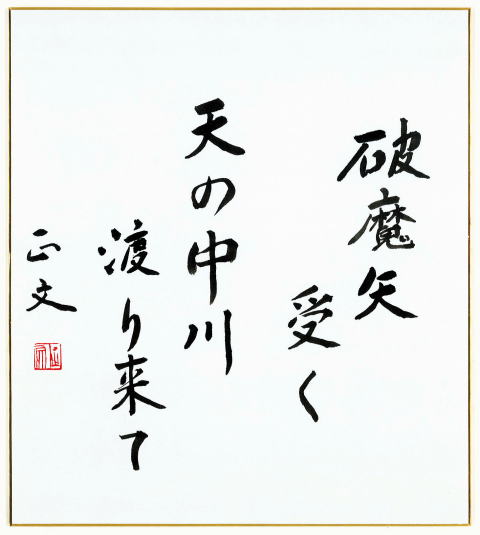 破魔矢
受く
天の中川
渡り来て
正文